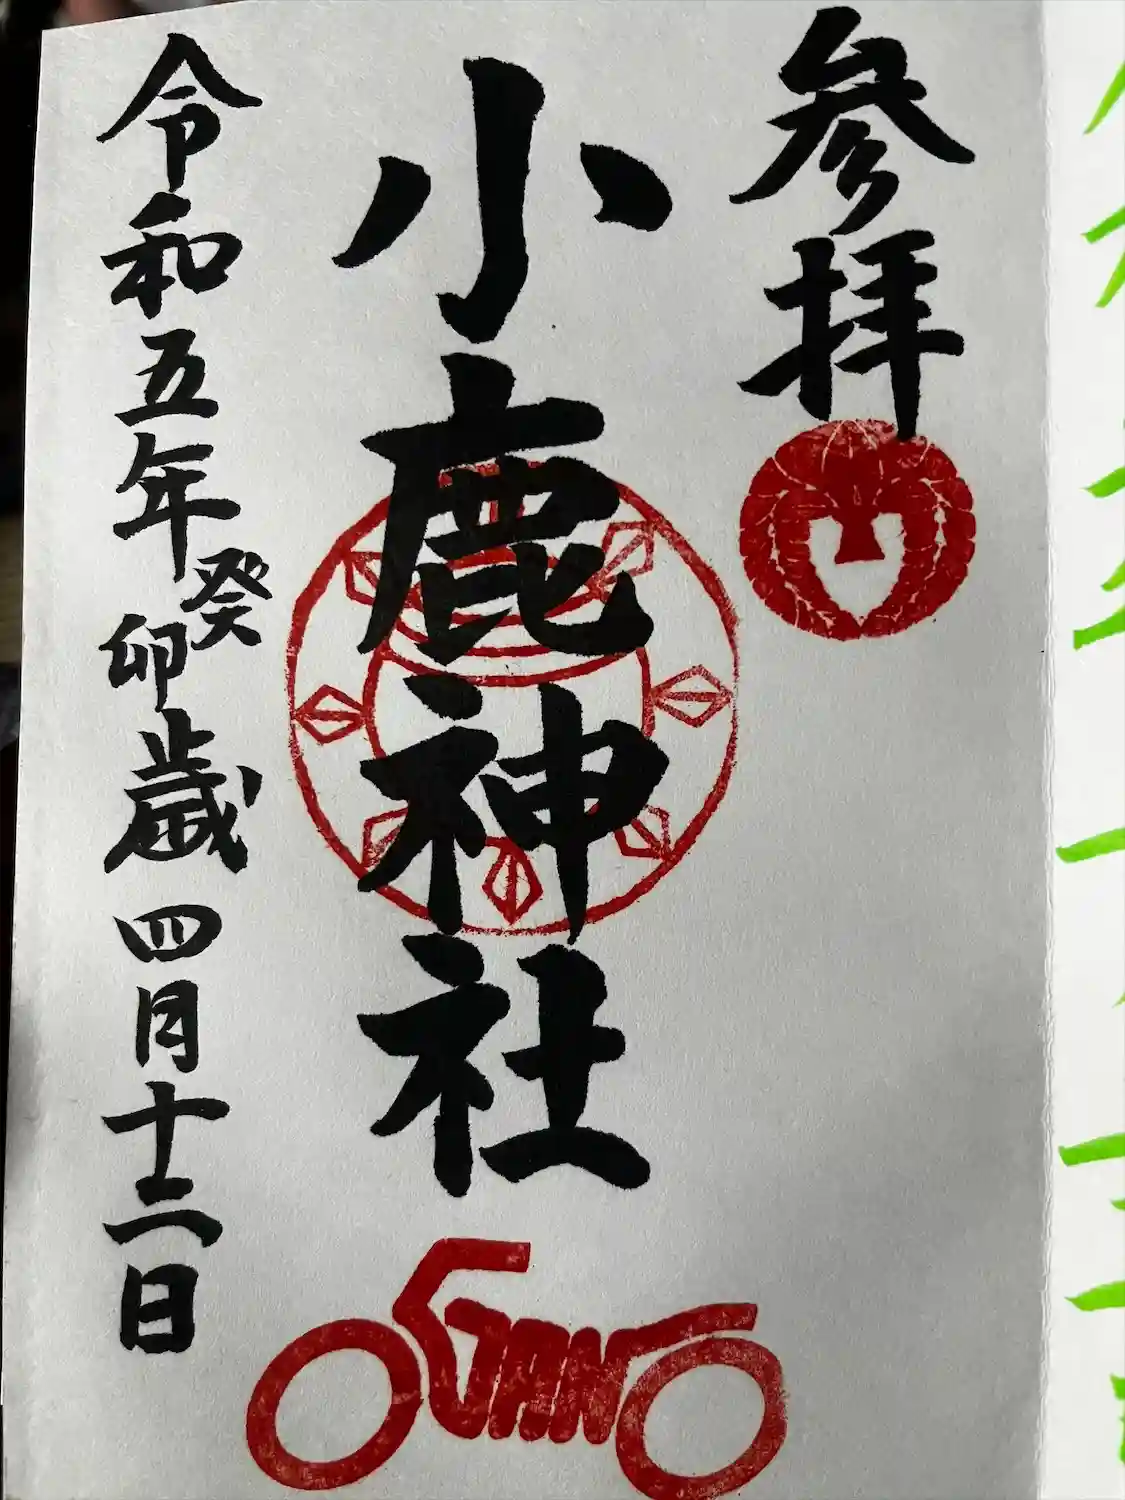 参拝
小鹿神社
令和五年癸卯歳四月十二日